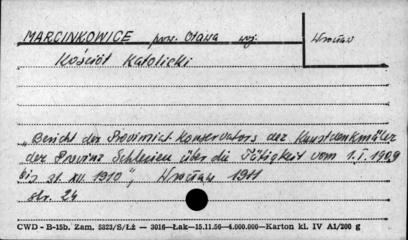 MARCINKOWICE pow. Oława woj. Wrocław
Kościół Katolicki
"Bericht der Provinzial-Konservators der Kunstdenkmäler
der Provinz Schlesien über die Tätigkeit vom 1.I.1909
bis 31.XII.1910", Wrocław 1911
str. 24
CWD - B-15b. Zam. 5823/S/Łż — 3016—Łak—15.11.56—4.000.000—Karton kl. IV A1/200 g